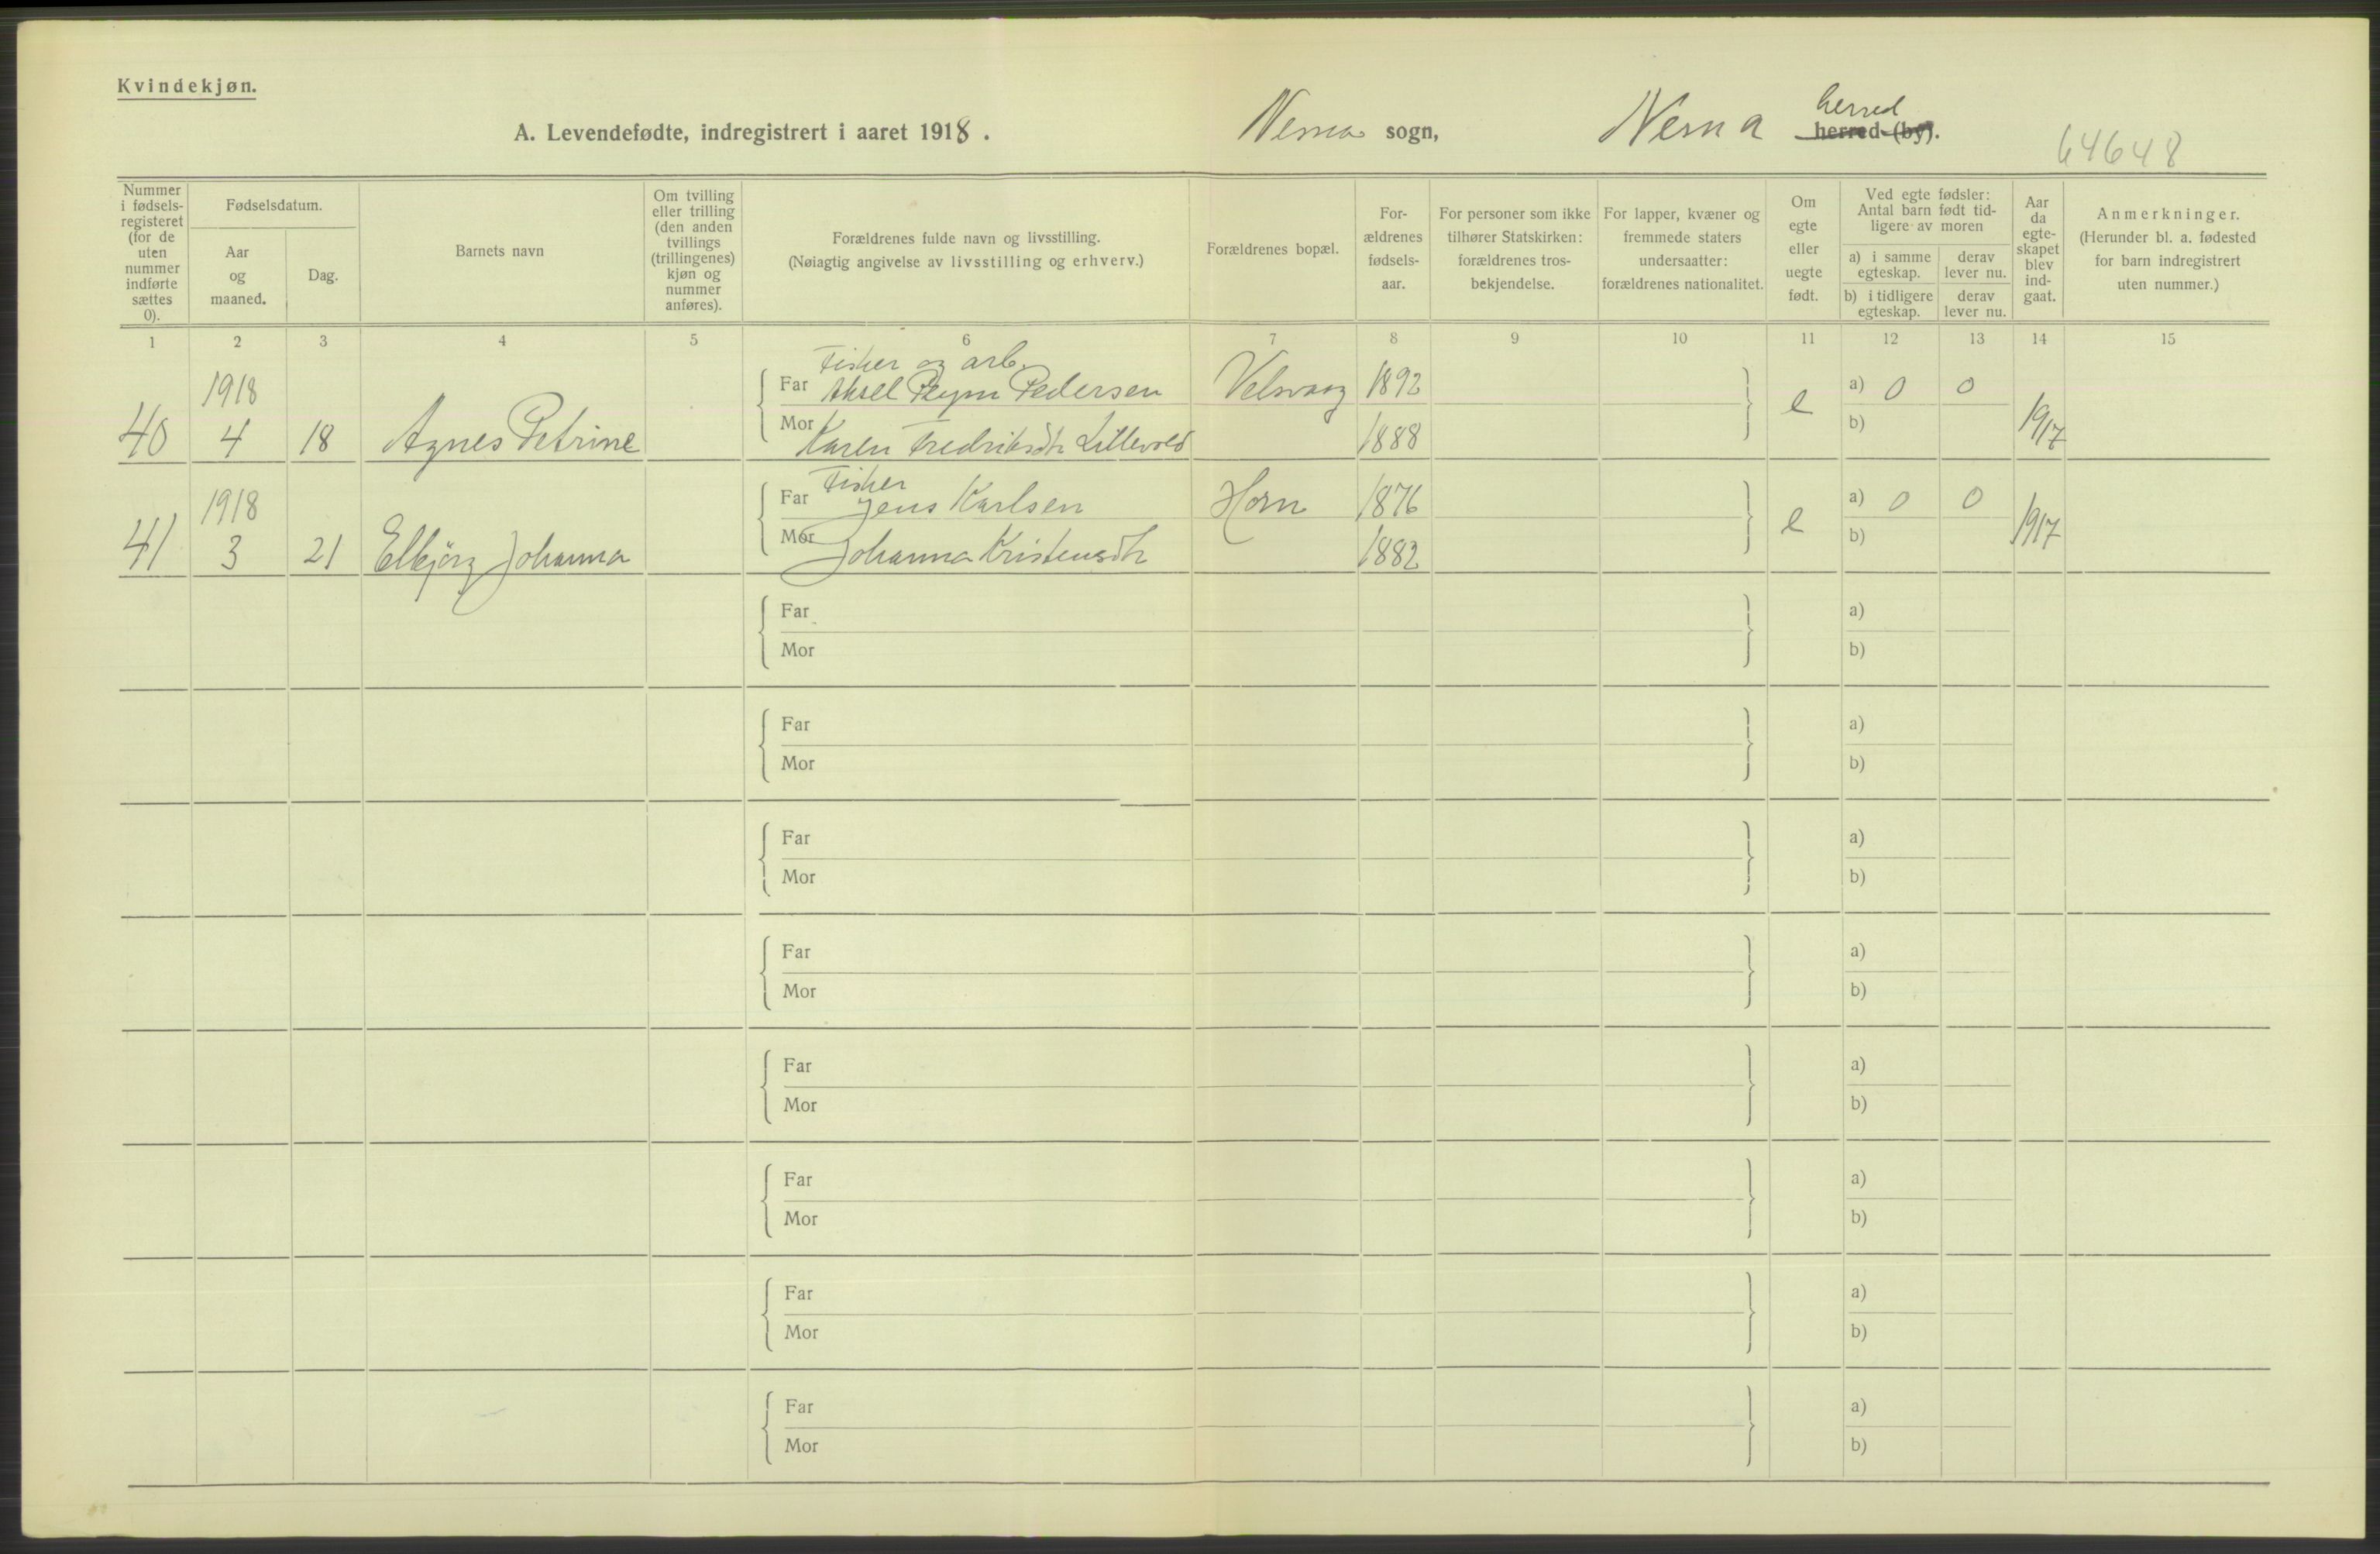 Kvindekjøn.
A. Levendefødte, indregistrert i aaret 1918.
Nesna sogn,
Nesna herred
herred (by).
64648
Nummer i fødsels-registeret (for de uten nummer indførte sættes 0).
Fødselsdatum.
Aar og maaned.
Dag.
Barnets navn
Om tvilling eller trilling (den anden tvillings (trillingenes) kjøn og nummer anføres).
Forældrenes fulde navn og livsstilling.
(Nøiagtig angivelse av livsstilling og erhverv.)
Forældrenes bopæl.
For-ældrenes fødsels-aar.
For personer som ikke tilhører Statskirken: forældrenes tros-bekjendelse.
For lapper, kvæner og fremmede staters undersaatter: forældrenes nationalitet.
Om egte eller uegte født.
Ved egte fødsler: Antal barn født tid-ligere av moren
a) i samme egteskap.
derav lever nu.
b) i tidligere egteskap.
derav lever nu.
Aar da egte-skapet blev ind-gaat.
Anmerkninger.
(Herunder bl. a. fødested for barn indregistrert uten nummer.)
1 2 3 4 5 6 7 8 9 10 11 12 13 14 15
Fisker og arb.
1918 Far Aksel Pedersen 1892 a) 0 0
40 4 18 Agnes Petrine Mor Karen Fredriksdtr 1888 e b) 1917
Fisker
1918 Far Jens Karlsen Horn 1876 a) 0 0
41 3 21 Elbjörg Johanna Mor Johanna Kristensdtr 1882 e b) 1917
Far a)
Mor b)
Far a)
Mor b)
Far a)
Mor b)
Far a)
Mor b)
Far a)
Mor b)
Far a)
Mor b)
Far a)
Mor b)
Far a)
Mor b)